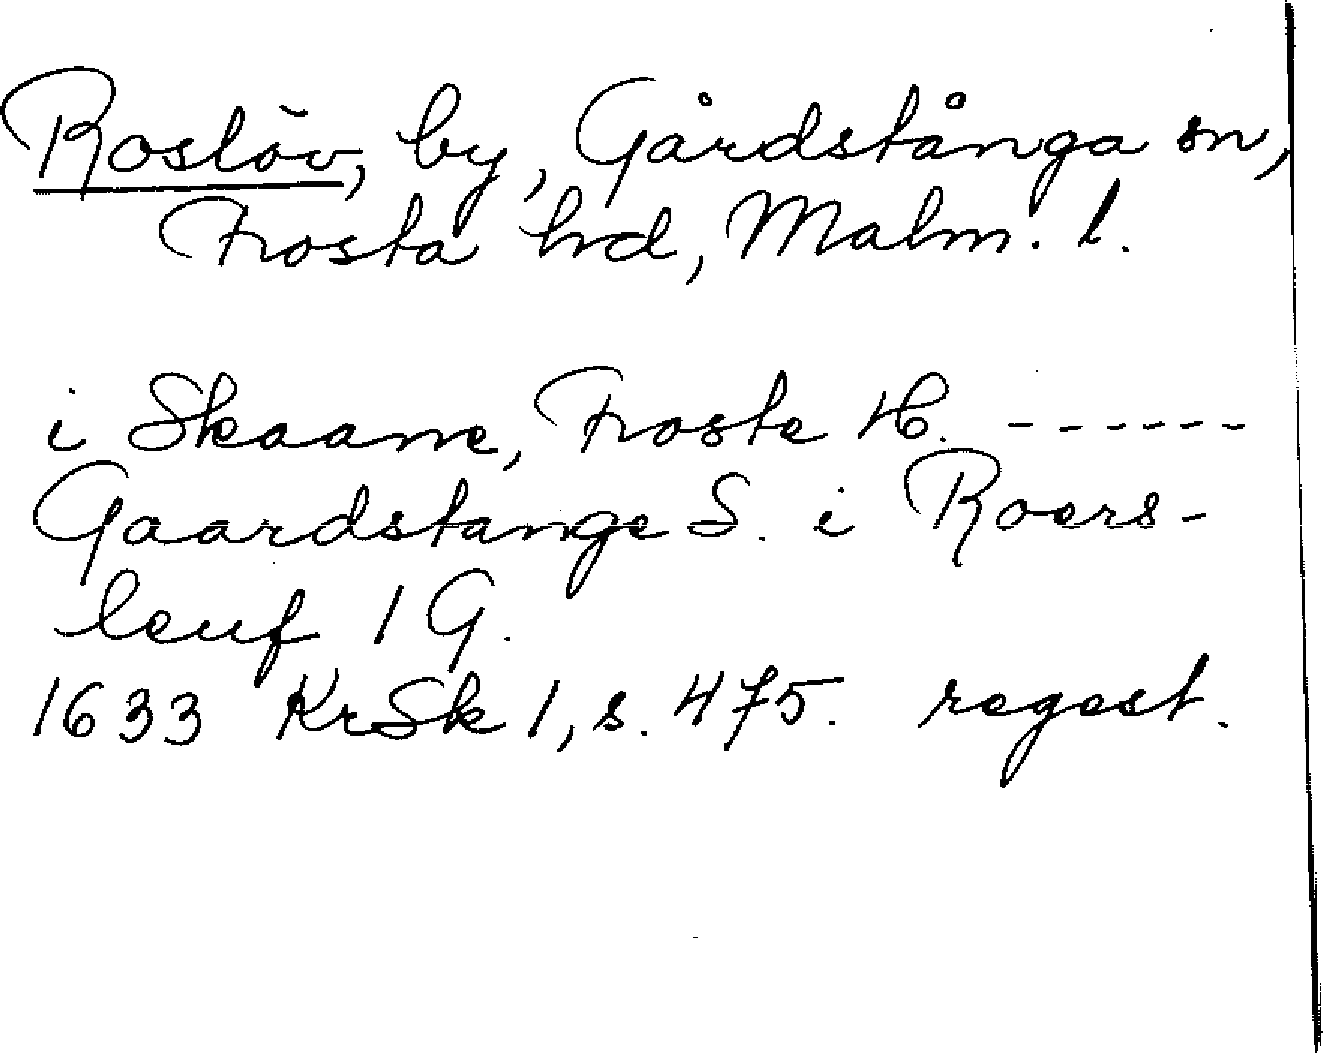 Roslöv, by, Gårdstånga sn,
Frosta hd, Malm. l.
i Skaane, Froste H. ------
Gaardstange S. i Roers-
leuf 1 G.
1633 KrSk 1, s. 475. regest.